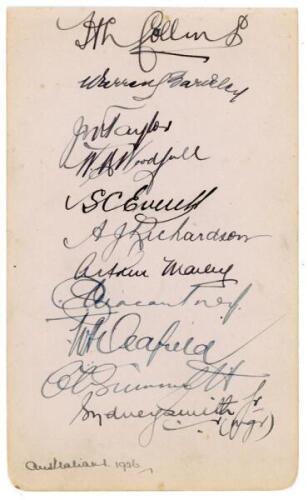 H L Collins
Warren Bardsley
J M Taylor
W M Woodfull
S C Everett
A J Richardson
Arthur Mailey
C G Macartney
W A Oldfield
C V Grimmett
Sydney Smith Jr
(mgr)
Australians. 1926